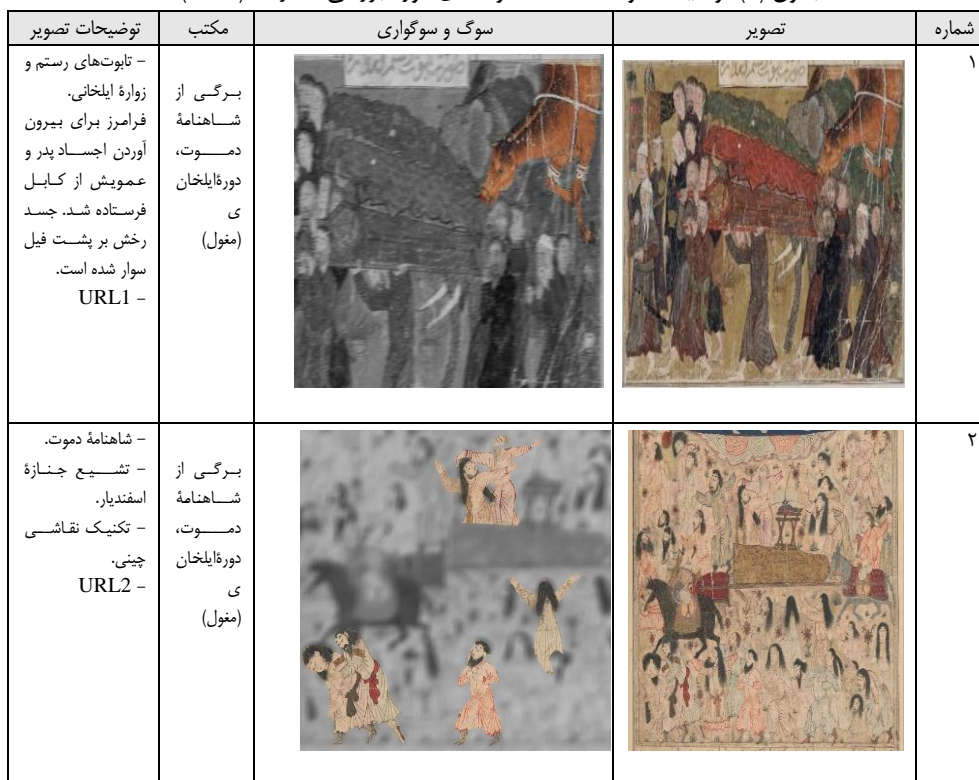 شماره
تصویر
سوگ و سوگواری
مکتب
توضیحات تصویر
۱
بـرگـی از
شــاهنامۀ
دمــــوت،
دورۀایلخان
ی
(مغول)
- تابوت‌های رستم و
زوارۀ ایلخانی.
فرامرز برای بیرون
آوردن اجســاد پدر و
عمویش از کـابـل
فرستاده شـد. جسد
رخش بر پشــت فیل
سوار شده است.
- URL1
۲
بـرگـی از
شــاهنامۀ
دمــــوت،
دورۀایلخان
ی
(مغول)
- شاهنامۀ دموت.
- تشــــیع جـنـازۀ
اسفندیار.
- تکنیک نقاشــی
چینی.
- URL2